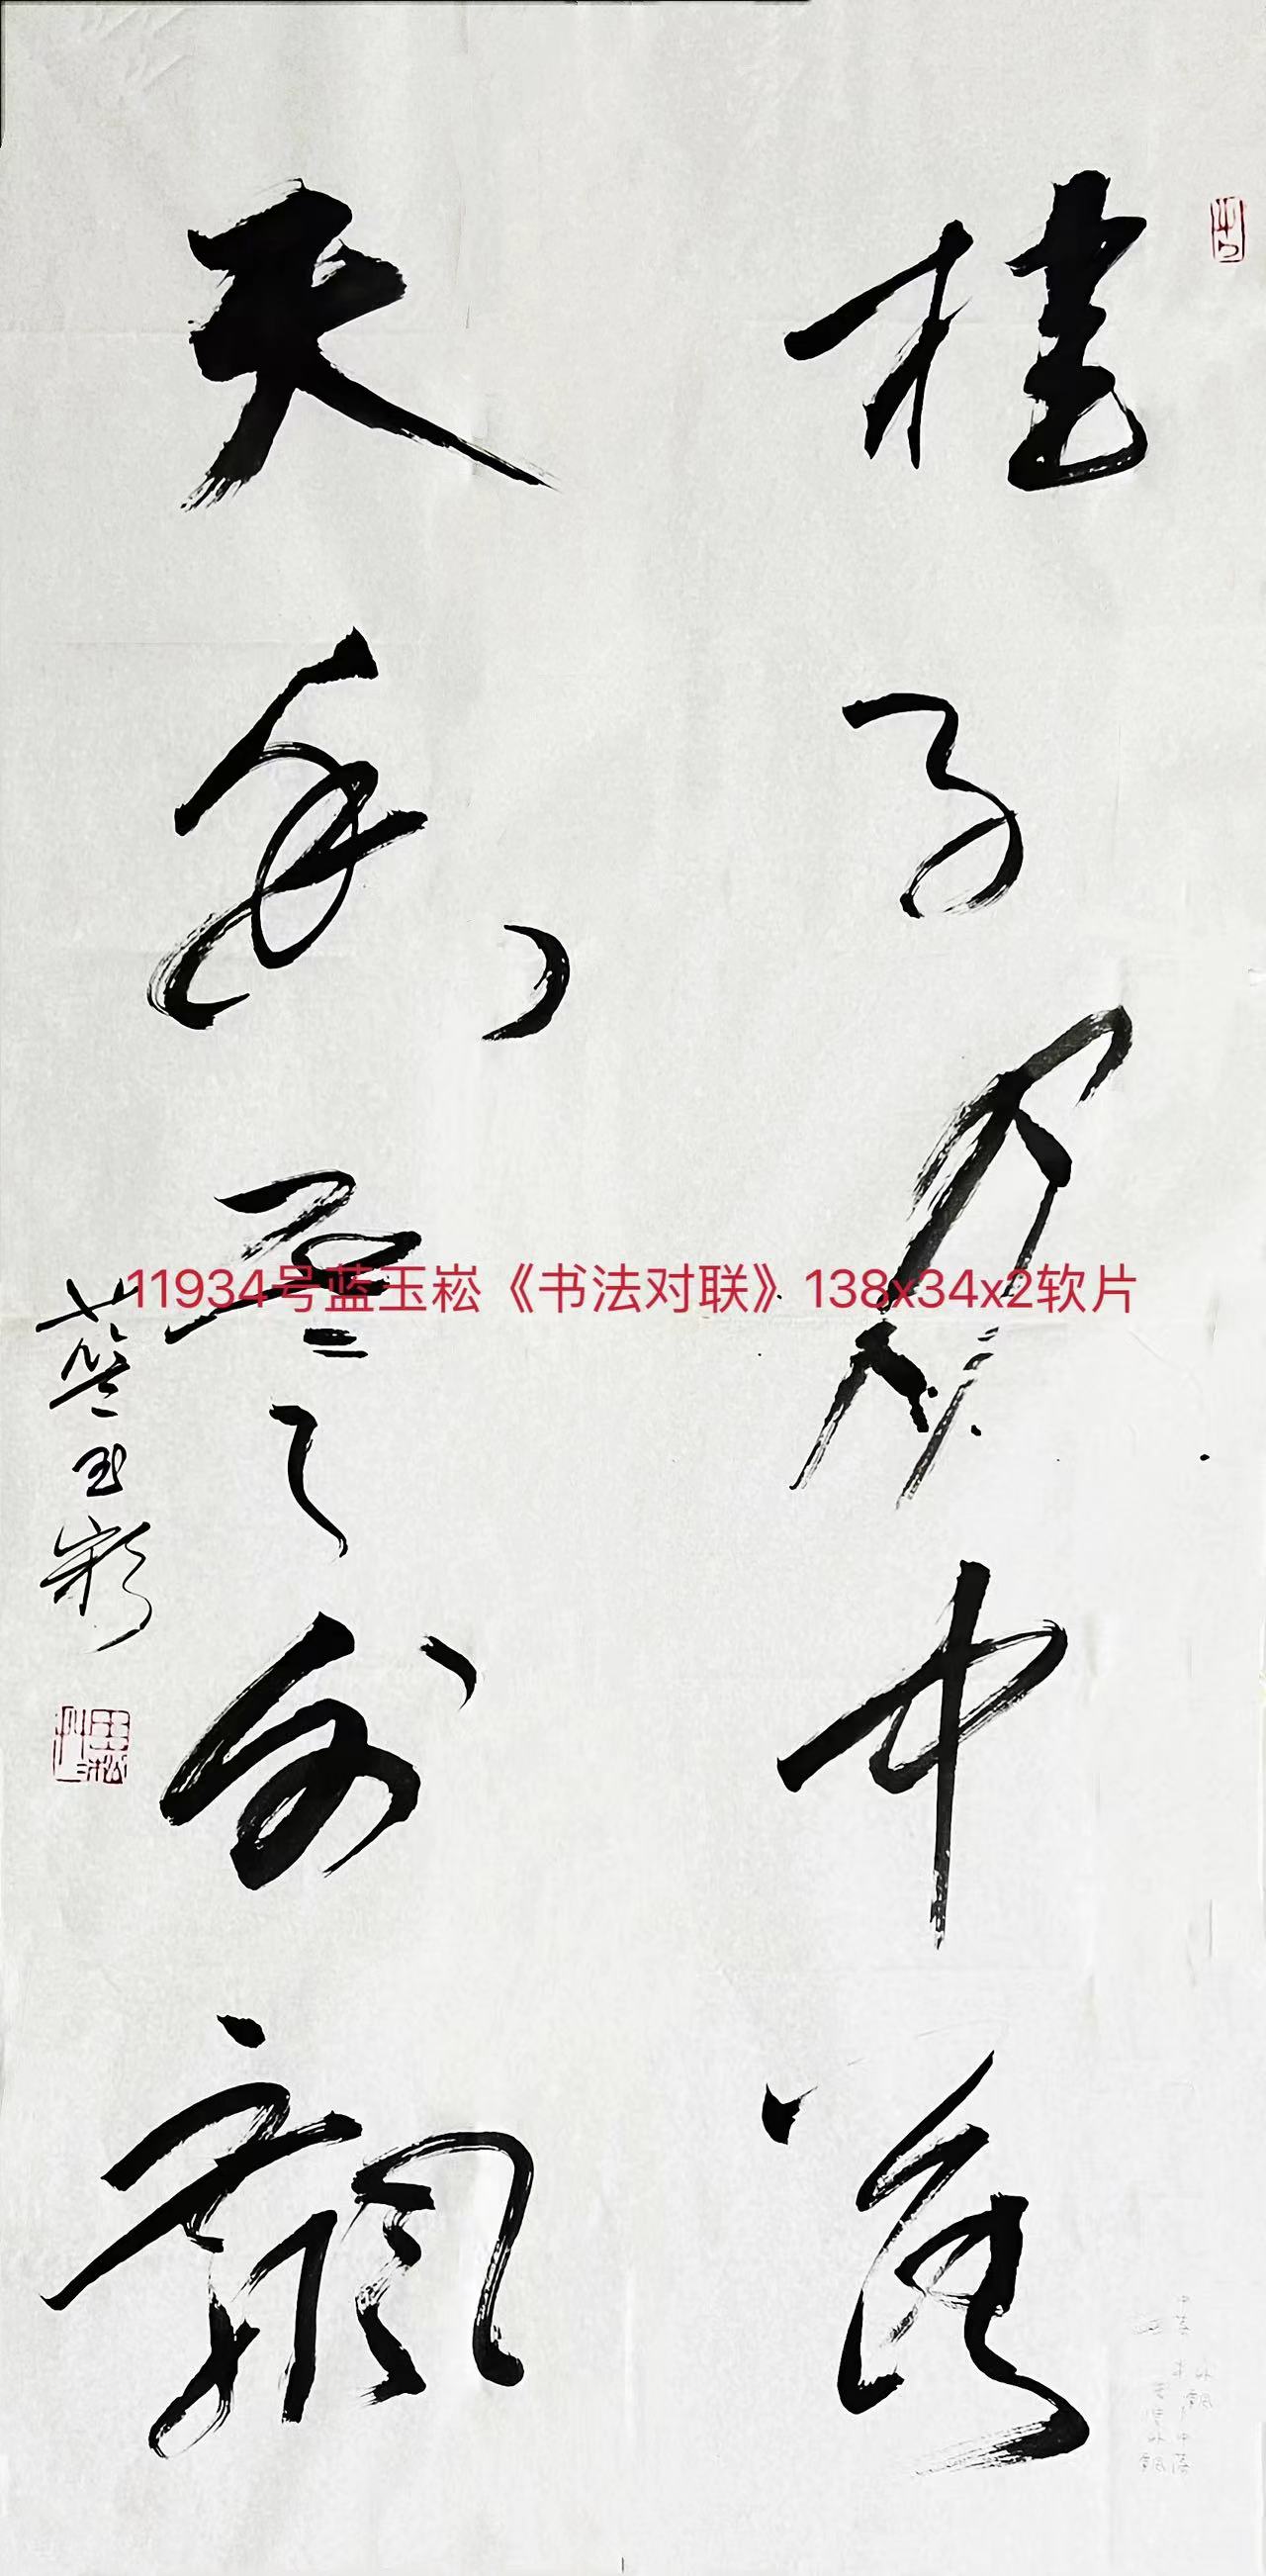 桂子月中落
天香云外飘
蓝玉崧
11934号蓝玉崧《书法对联》138x34x2软片